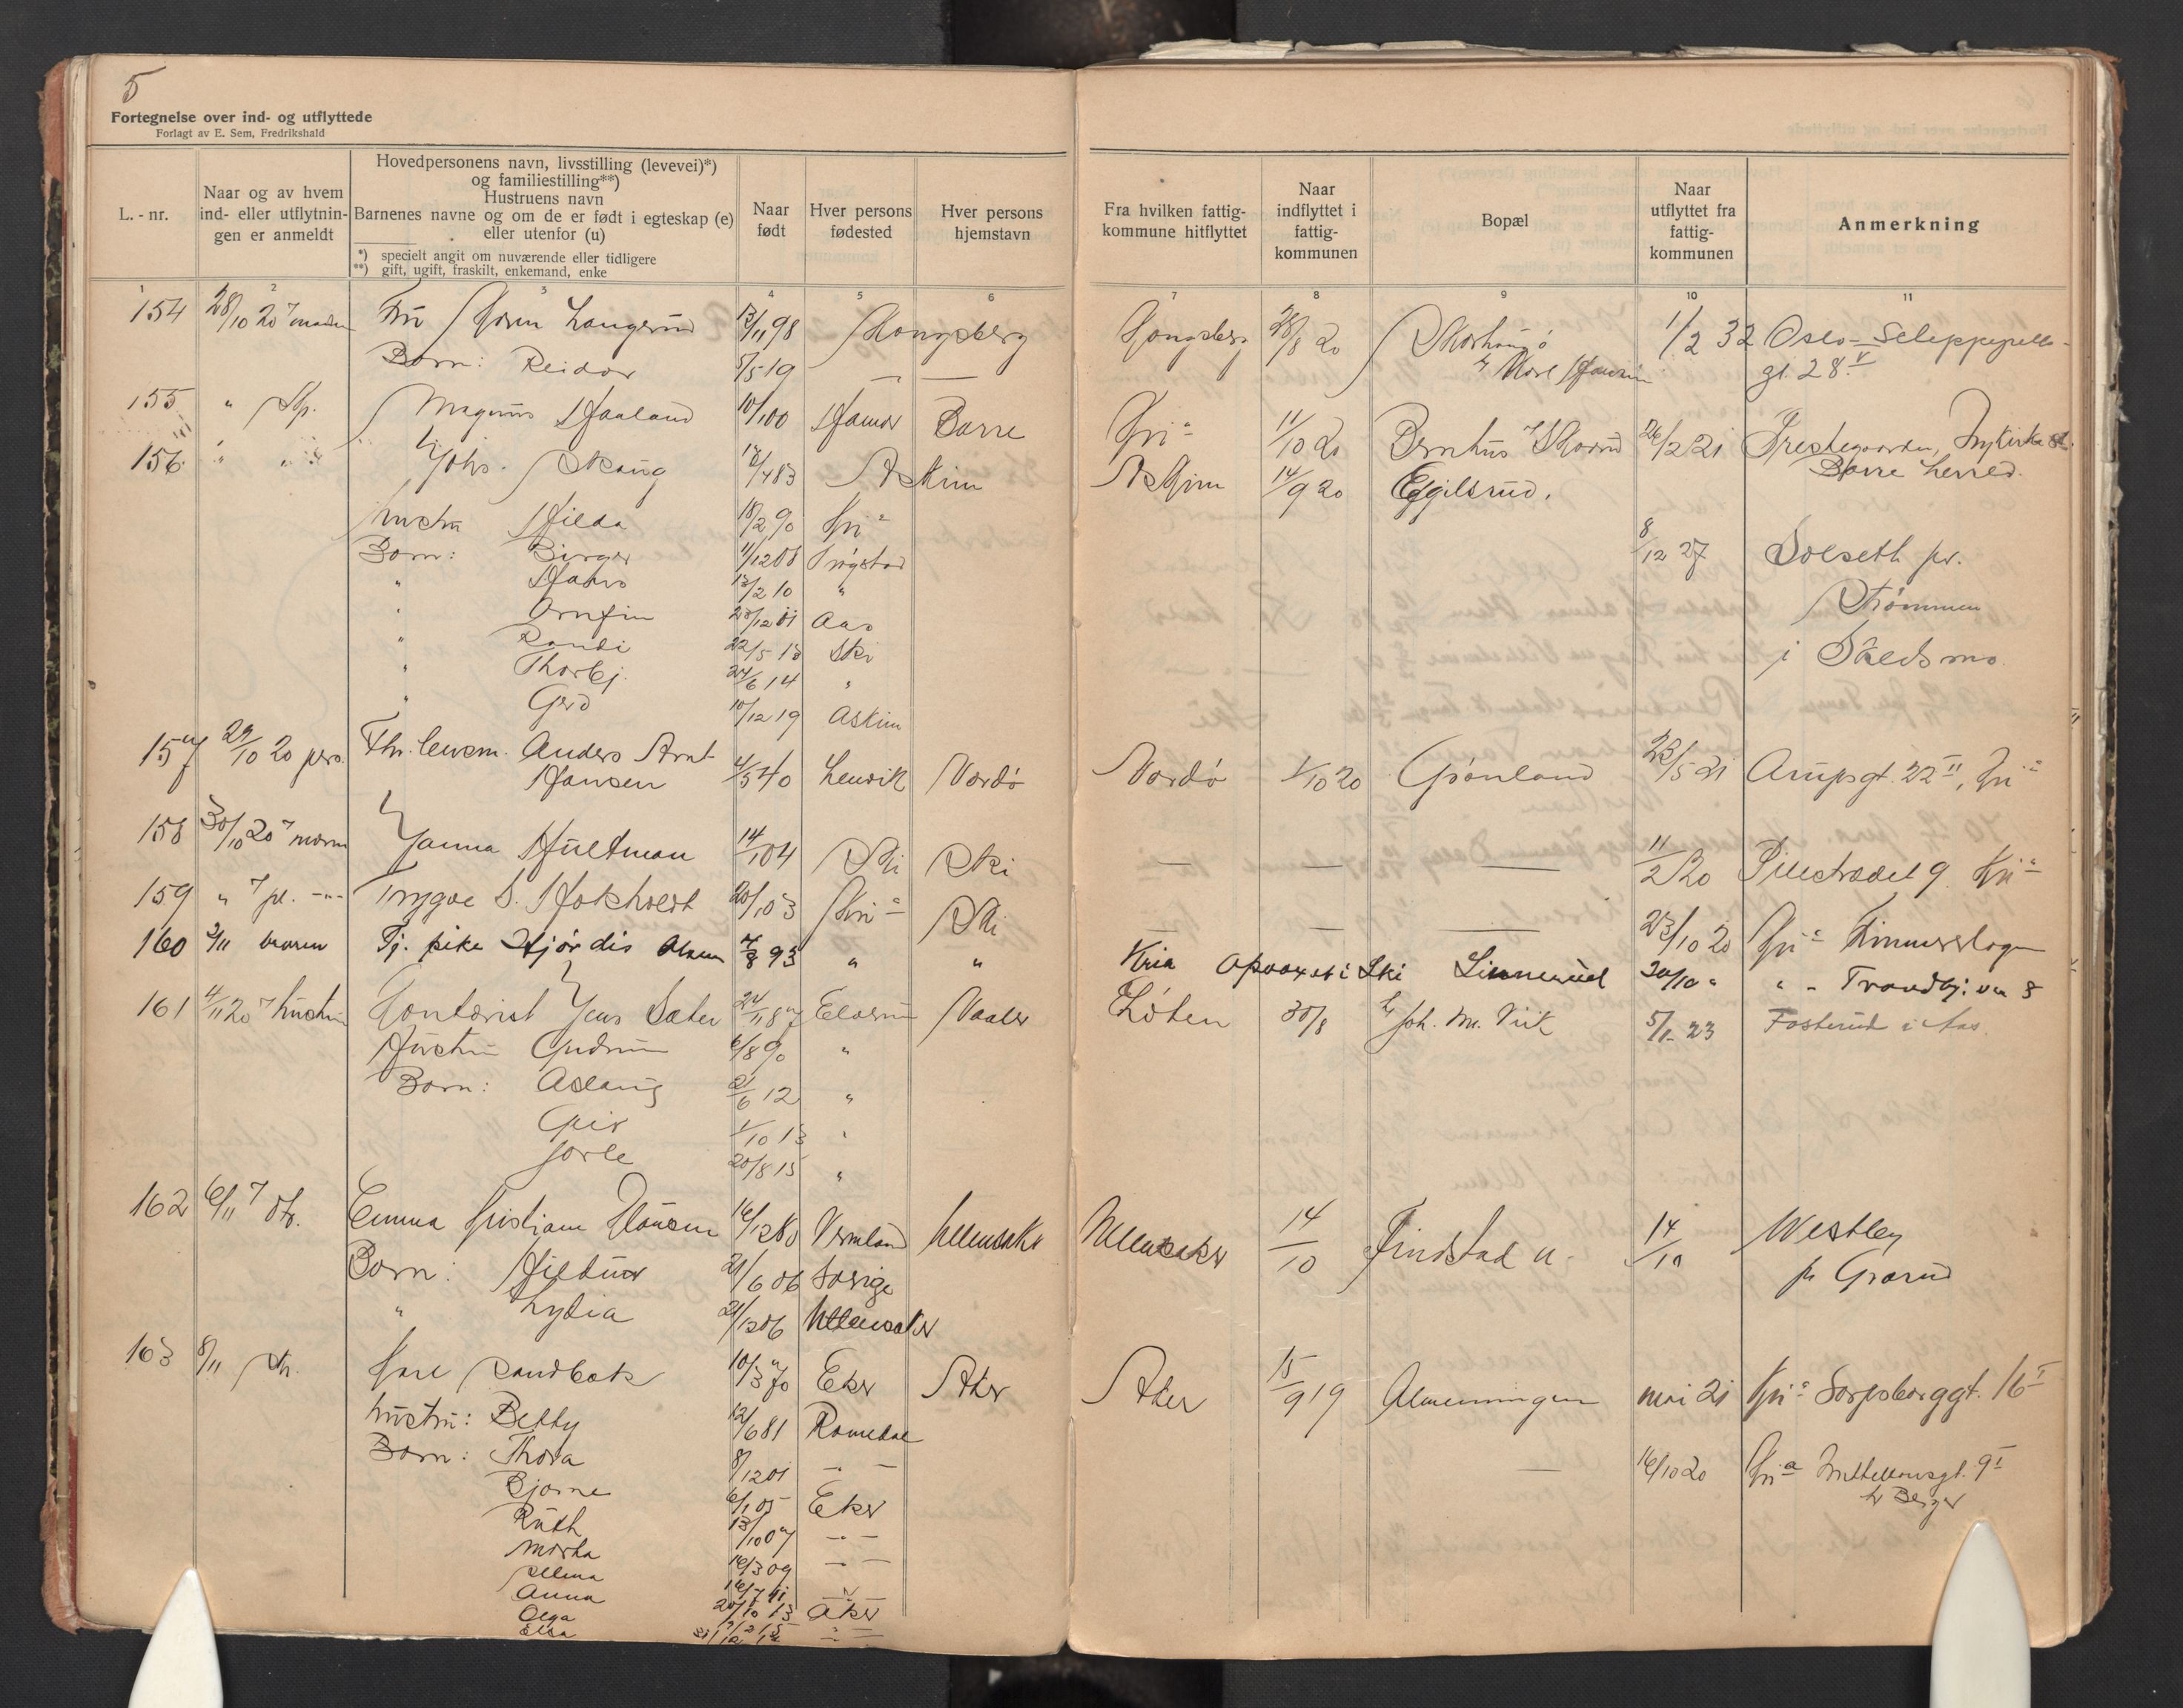 5
Fortegnelse over ind- og utflyttede
Forlagt av E. Sem, Fredrikshald
L. - nr.
Naar og av hvem ind- eller utflytnin- gen er anmeldt
Hovedpersonens navn, livsstilling (levevei)*) og familiestilling**)
Hustruens navn
Barnenes navne og om de er født i egteskap (e) eller utenfor (u)
*) specielt angit om nuværende eller tidligere
**) gift, ugift, fraskilt, enkemand, enke
Naar født
Hver persons fødested
Hver persons hjemstavn
Fra hvilken fattig- kommune hitflyttet
Naar indflyttet i fattig- kommunen
Bopæl
Naar utflyttet fra fattig- kommunen
Anmerkning
1 2 3 4 5 6 7 8 9 10 11
154 28/10 20 Fru Langerud 13/11 98 Kongsberg Kongsberg 28/8 20 1/2 32 Oslo
Barn: Reidar 5/5 19 — — gt. 28 V
155 " Magnus Haaland 10/1 00 Hamar Borre Kria 11/10 20 26/2 21 Prestegaarden, Nykirke st.
Borre herred.
156 " " Johs. Skaug 483 Askim Askim 14/9 20 Eggilsrud.
hustru Hilda 18/2 90 Kria
Barn: Birger 1/12 08 8/12 27 Solseth pr.
" Hans 13/2 10 " Strømmen
" Arnfin Aas
" Randi 22/5 13 Ski i Skedsmo.
" Thorbj. 24/6 14 "
" Gerd 10/12 19 Askim
157 29/10 20 pers. Anders Arnt
Hansen 4/5 40 Lenvik Vardø Vardø 1/10 20 Grønland 23/5 21 Arupsgt. 22 II, Kria
158 30/10 20 Janna Hultman 14/1 04 Ski Ski — — — 11/2 20 Pilestrædet 9 Kria
159 " Trygve S. 20/1 03 Kria Ski — — — 23/10 20 Kria
160 2/11 Tj. pike Hjørdis Olsen 7/8 93 " " Kria opvoxet i Ski Linnerud 30/10 "
161 4/11 20 hustru Kontorist Jens Sæter 24/11 87 Elverum Vaaler Løten 30/8 Joh. M. Vik 5/1 23 Fosterud i Aas.
Hustru Gudrun 6/8 90 "
Barn: Aslaug 21/6 12 "
Geir 1/10 13 "
Jorle 20/8 15 "
162 6/11 Emma Kristjane Hansen 16/12 80 Vermland Ullensaker Ullensaker 14/10 Finstad u. 14/10 Westby
Barn: 21/6 06 Sverige pr Graarud
" Lydia Ullensaker
163 8/11 Karl Sandbæk 10/3 70 Eker Aker Aker 15/9 19 Almenningen mai 21 Kria Sarpsborggt. 16 I
hustru: Betty 12/6 81 Romedal
Barn: Thora 8/12 01 — " — — 16/10 20 Kria 9 I
Bjarne 6/1 05 Eker
Ruth 13/10 07 — " —
Marta 16/3 09 — " —
Anna 20/10 13 Aker
Olga
Elsa